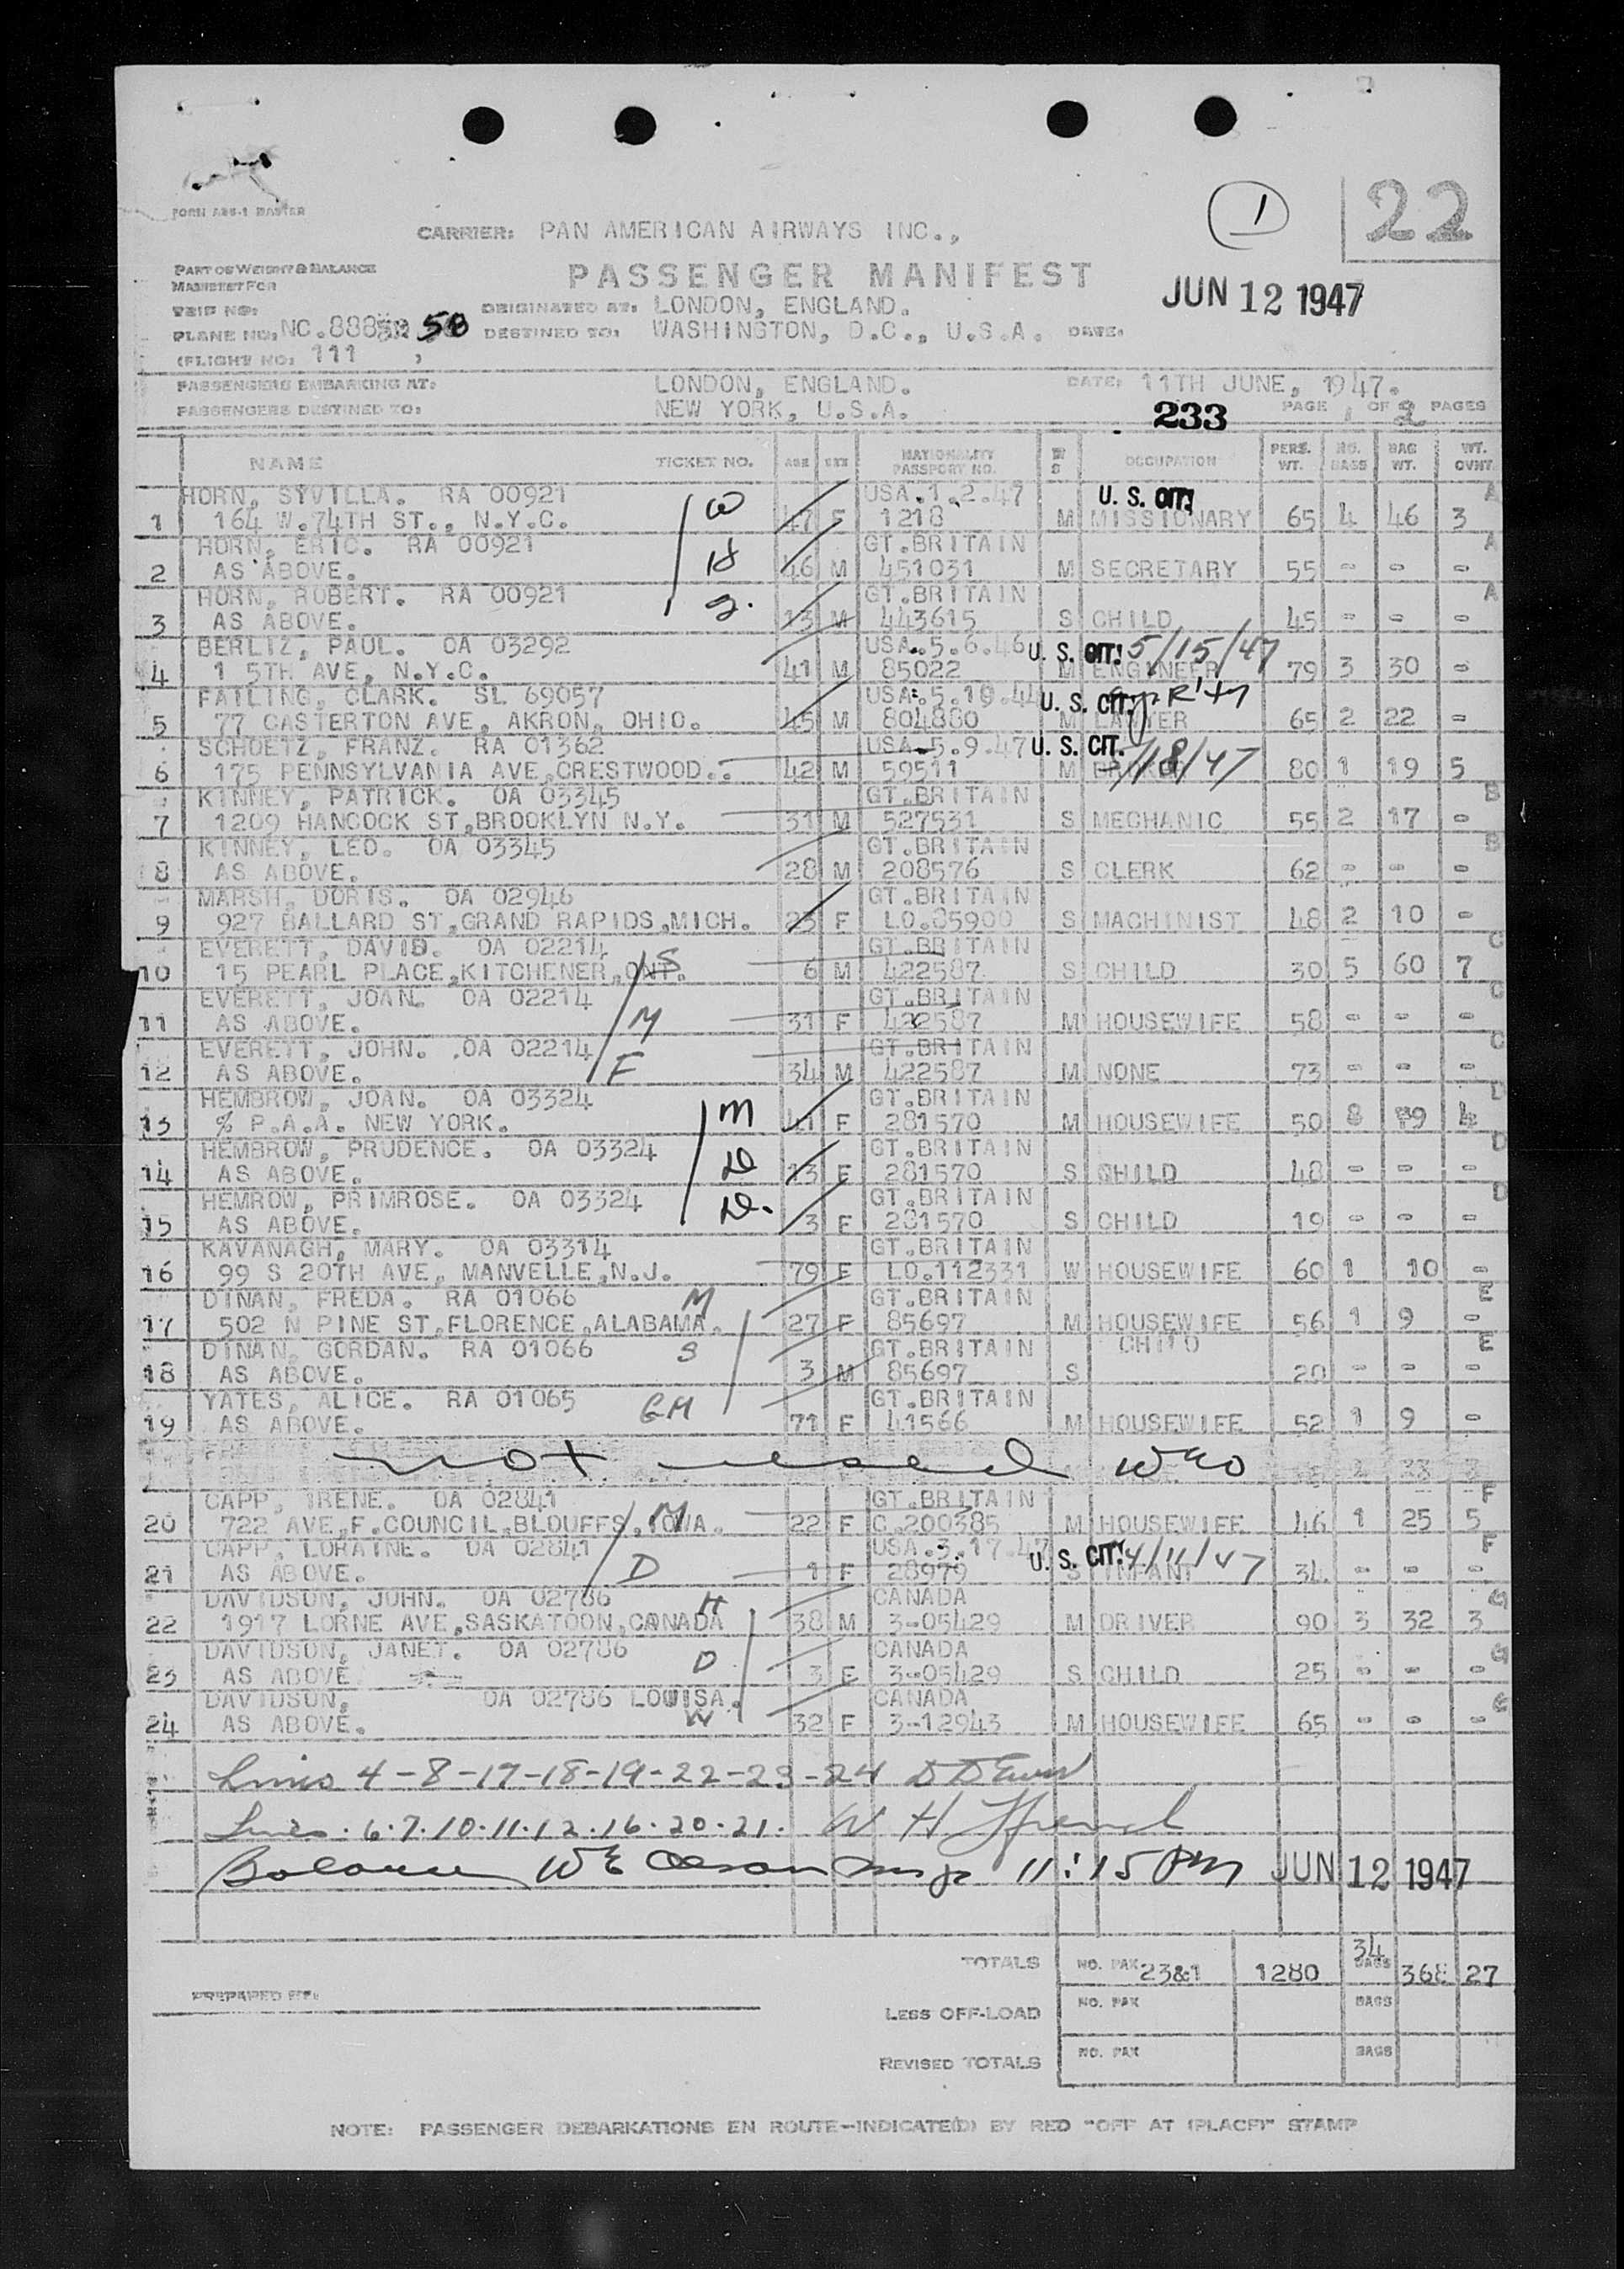 22
1
FORM ABS-1 MASTER
CARRIER: PAN AMERICAN AIRWAYS INC.,
PART OF WEIGHT & BALANCE
MANIFEST FOR
PASSENGER MANIFEST
JUN 12 1947
TRIP NO:
ORIGINATED AT: LONDON, ENGLAND.
PLANE NO: NC.888 50
DESTINED TO: WASHINGTON, D.C., U.S.A. DATE:
(FLIGHT NO: 111 )
PASSENGERS EMBARKING AT: LONDON, ENGLAND. DATE: 11TH JUNE, 1947.
PASSENGERS DESTINED TO: NEW YORK, U.S.A. 233 PAGE 1 OF 2 PAGES
NAME TICKET NO. AGE SEX NATIONALITY PASSPORT NO. M S OCCUPATION PERS. WT. NO. BAGS BAG WT. WT. OVHT
HORN, SYVILLA. RA 00921 W USA.1.2.47 U. S. CIT. A
1 164 W.74TH ST., N.Y.C. 47 F 1218 M MISSIONARY 65 4 46 3
HORN, ERIC. RA 00921 H GT.BRITAIN A
2 AS ABOVE. 46 M 451031 M SECRETARY 55 - - -
HORN, ROBERT. RA 00921 S. GT.BRITAIN A
3 AS ABOVE. 13 M 443615 S CHILD 45 - - -
BERLIZ, PAUL. OA 03292 USA.5.6.46 U. S. CIT. 5/15/47
4 1 5TH AVE, N.Y.C. 41 M 85022 M ENGINEER 79 3 30 -
FAILING, CLARK. SL 69057 USA.5.19.4 U. S. CIT.
5 77 CASTERTON AVE, AKRON, OHIO. 45 M 804880 M LAWYER 65 2 22 -
SCHOETZ, FRANZ. RA 01362 USA.5.9.47 U. S. CIT.
6 175 PENNSYLVANIA AVE,CRESTWOOD.. 42 M 59511 M /18/47 80 1 19 5
KINNEY, PATRICK. OA 03345 GT.BRITAIN B
7 1209 HANCOCK ST,BROOKLYN N.Y. 31 M 527531 S MECHANIC 55 2 17 -
KINNEY, LEO. OA 03345 GT.BRITAIN B
8 AS ABOVE. 28 M 208576 S CLERK 62 - - -
MARSH, DORIS. OA 02946 GT.BRITAIN
9 927 BALLARD ST,GRAND RAPIDS,MICH. 23 F LO.85900 S MACHINIST 48 2 10 -
EVERETT, DAVID. OA 02214 S GT.BRITAIN C
10 15 PEARL PLACE,KITCHENER,ONT. 6 M 422587 S CHILD 30 5 60 7
EVERETT, JOAN. OA 02214 GT.BRITAIN C
11 AS ABOVE. M 31 F 422587 M HOUSEWIFE 58 - - -
EVERETT, JOHN. OA 02214 GT.BRITAIN C
12 AS ABOVE. F 34 M 422587 M NONE 73 - - -
HEMBROW, JOAN. OA 03324 M GT.BRITAIN D
13 % P.A.A. NEW YORK. 41 F 281570 M HOUSEWIFE 50 8 79 4
HEMBROW, PRUDENCE. OA 03324 D GT.BRITAIN D
14 AS ABOVE. 13 F 281570 S CHILD 48 - - -
HEMROW, PRIMROSE. OA 03324 D. GT.BRITAIN D
15 AS ABOVE. 3 F 281570 S CHILD 19 - - -
KAVANAGH, MARY. OA 03314 GT.BRITAIN
16 99 S 20TH AVE, MANVELLE,N.J. 79 F LO.112331 W HOUSEWIFE 60 1 10 -
DINAN, FREDA. RA 01066 M GT.BRITAIN E
17 502 N PINE ST,FLORENCE,ALABAMA. 27 F 85697 M HOUSEWIFE 56 1 9 -
DINAN, GORDAN. RA 01066 S GT.BRITAIN CHILD E
18 AS ABOVE. 3 M 85697 S 20 - - -
YATES, ALICE. RA 01065 GM GT.BRITAIN
19 AS ABOVE. 71 F 41566 M HOUSEWIFE 52 1 9 -
not used WEO
CAPP, IRENE. OA 02841 M GT.BRITAIN F
20 722 AVE,F.COUNCIL,BLOUFFS,IOWA. 22 F C.200385 M HOUSEWIFE 46 1 25 5
CAPP, LORAINE. OA 02841 USA.3.17.47 U. S. CIT. 4/11/47 F
21 AS ABOVE. D 1 F 28979 S INFANT 34 - - -
DAVIDSON, JOHN. OA 02786 H CANADA G
22 1917 LORNE AVE,SASKATOON,CANADA 38 M 3-05429 M DRIVER 90 3 32 3
DAVIDSON, JANET. OA 02786 D CANADA G
23 AS ABOVE 3 F 3-05429 S CHILD 25 - - -
DAVIDSON, OA 02786 LOUISA. CANADA G
24 AS ABOVE. W 32 F 3-12943 M HOUSEWIFE 65 - - -
Lines 4-8-17-18-19-22-23-24
Lines. 6.7.10.11.12.16.20.21. W H French
Balance W E Olson 11:15 PM JUN 12 1947
TOTALS NO. PAX 23&1 1280 34 BAGS 368 27
PREPARED BY:
LESS OFF-LOAD NO. PAX BAGS
REVISED TOTALS NO. PAX BAGS
NOTE: PASSENGER DEBARKATIONS EN ROUTE-INDICATE(D) BY RED "OFF AT (PLACE)" STAMP